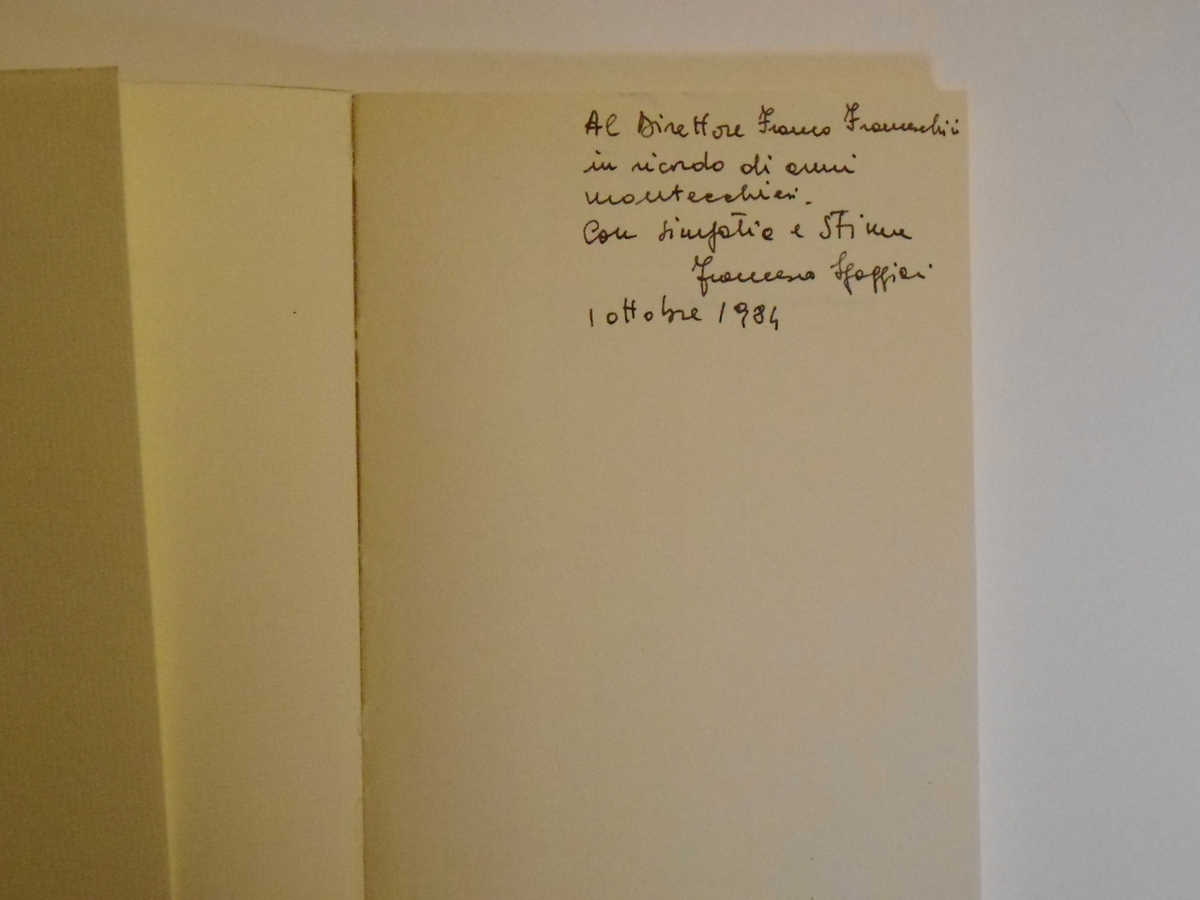 Al Direttore Franco Franceschini
in ricordo di anni
montecchiesi.
Con simpatia e stima
Francesco
1 ottobre 1984